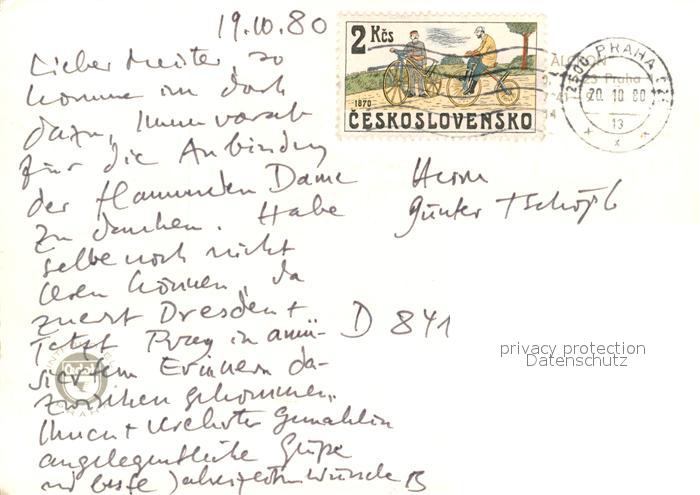 19.10.80
Lieber Meister, so
komme ich doch
dazu, Ihnen vorab
für die Anbindung
der flammenden Dame
zu danken. Habe
selbe noch nicht
lesen können, da
zuerst Dresden +
jetzt Prag in amü-
siertem Erinnern da-
zwischen gekommen.
Ihnen + verehrter Gemahlin
angelegentliche Grüße
und beste
2 Kčs
1870
ČESKOSLOVENSKO
PRAHA
20.10.80
13
Praha
Herrn
Günter Tschöpl
D 841
privacy protection
Datenschutz